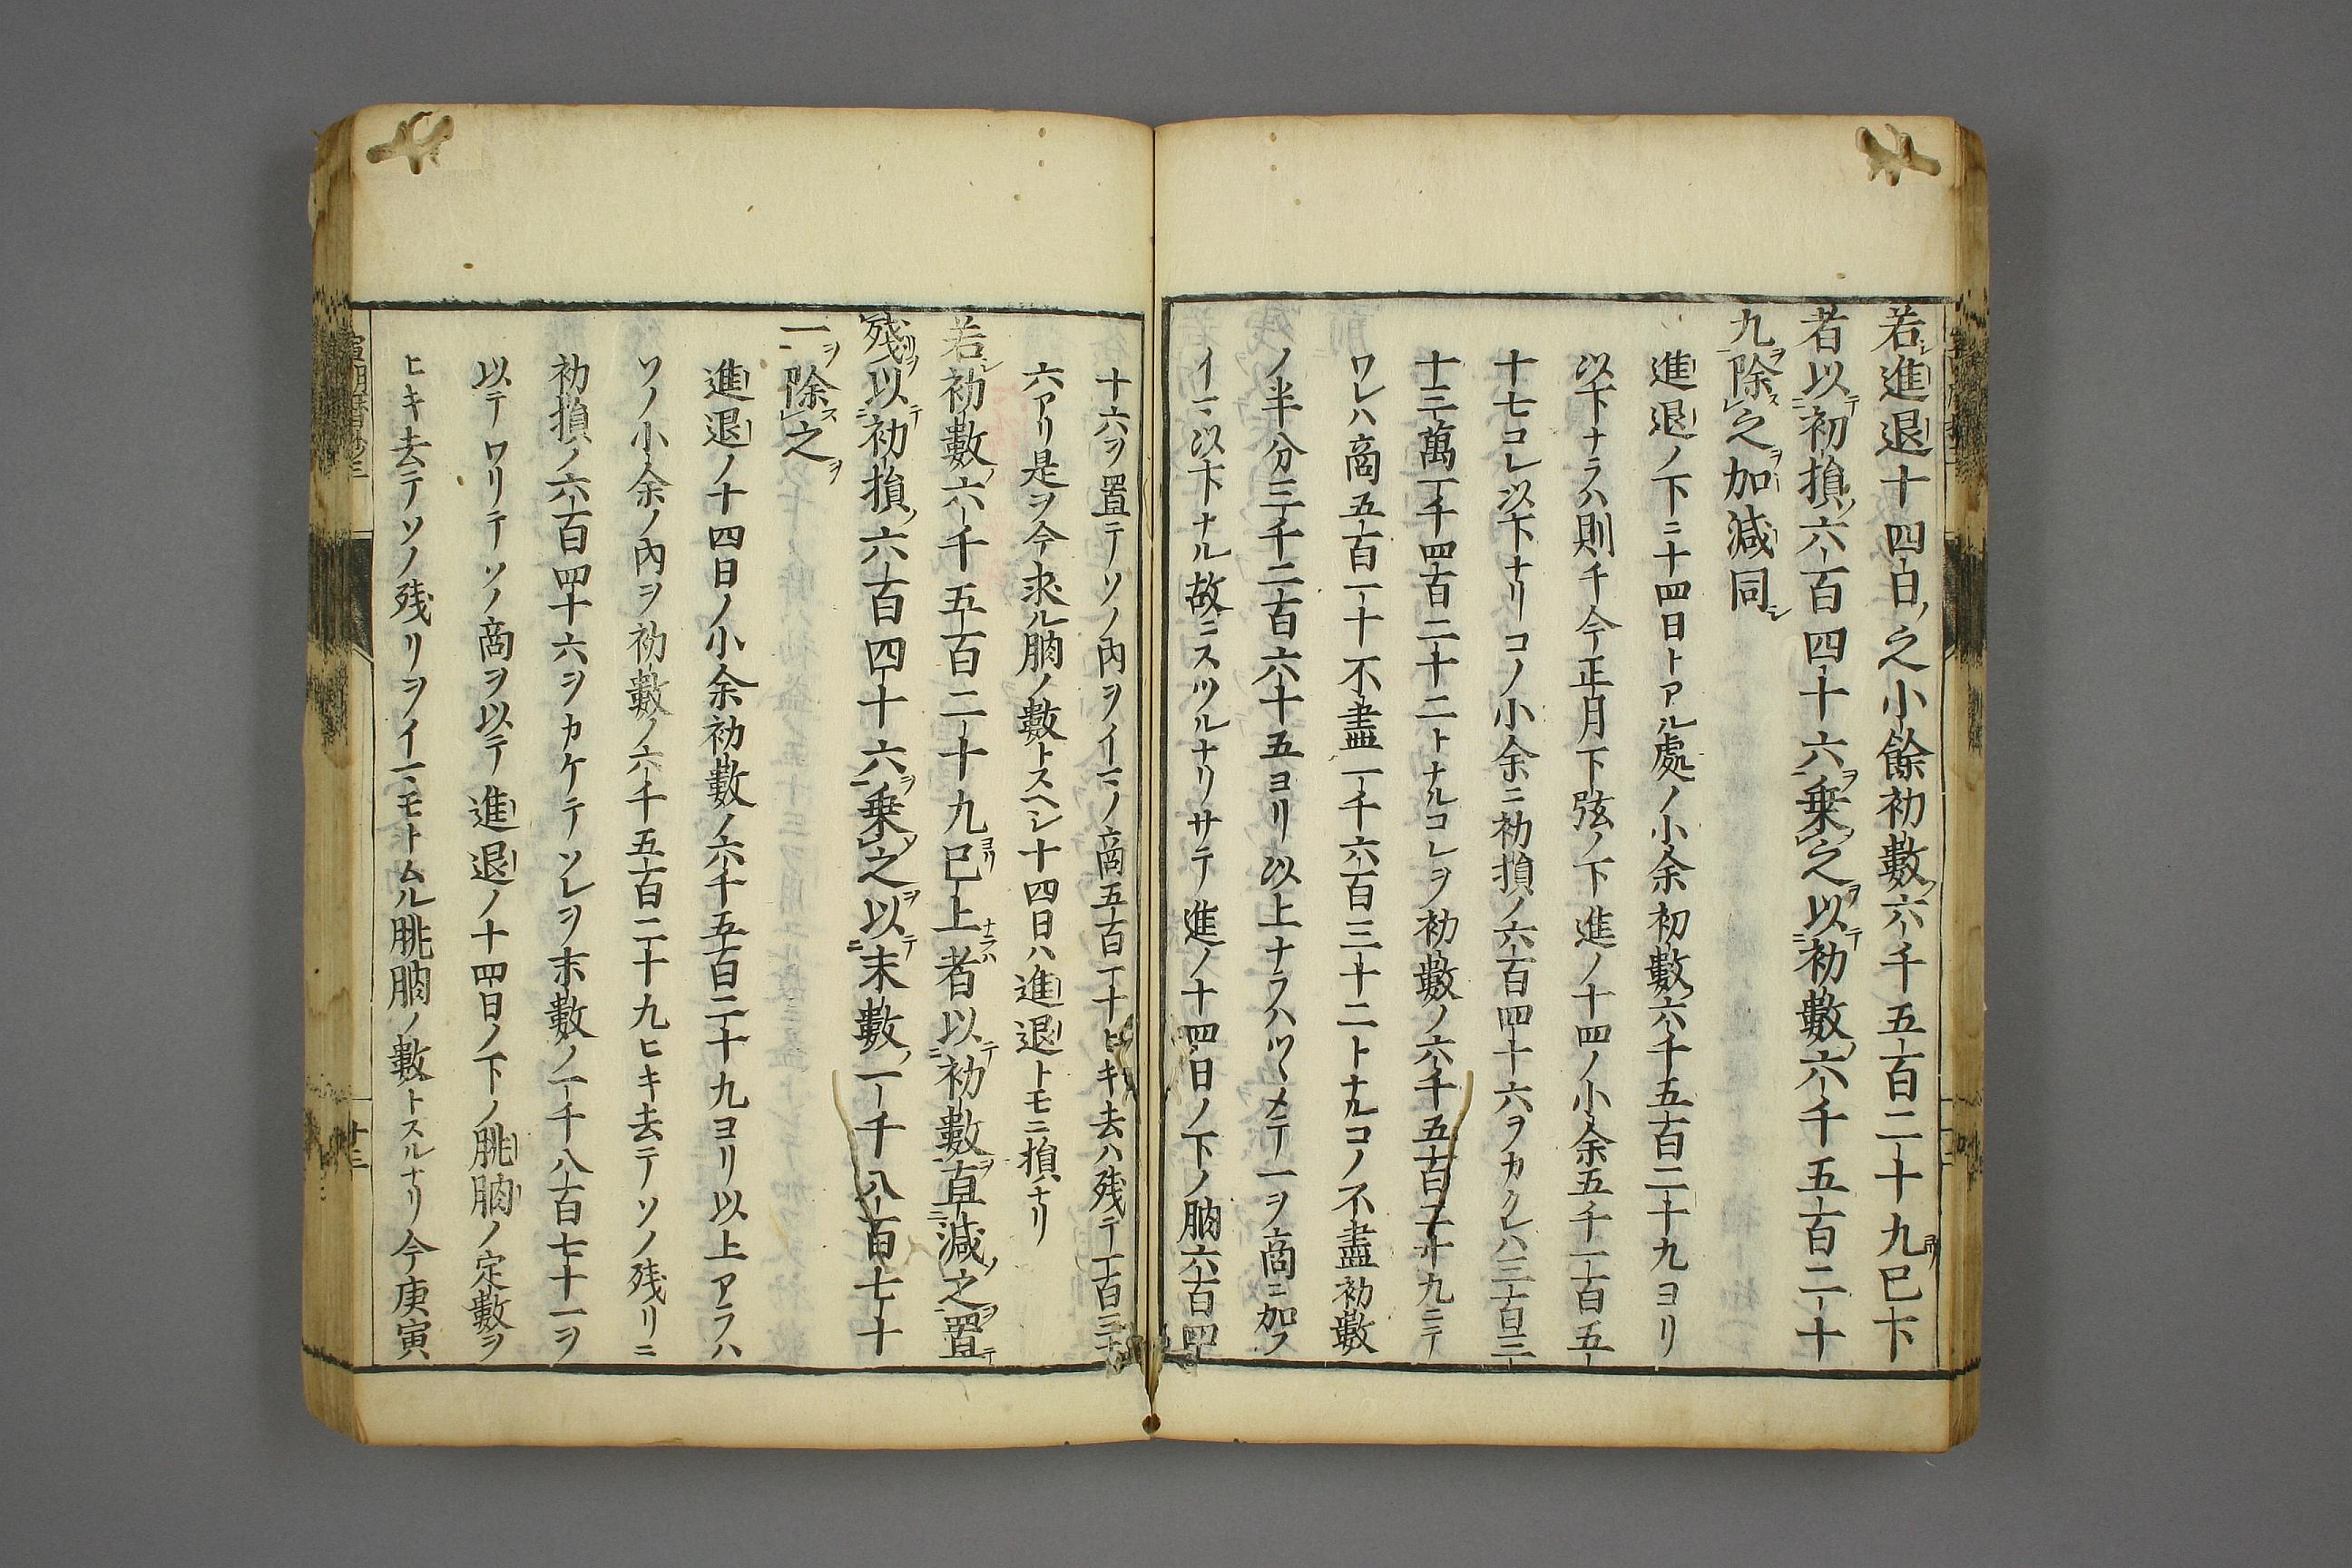 若進退十四日之小餘初數六千五百二十九已下
者以初損六百四十六乗之以初數六千五百二十
九除之加減同
進退ノ下ニ十四日トアル處ノ小余初數六千五百二十九ヨリ
以下ナラハ則千今正月下弦ノ下進ノ十四ノ小余五千一百五
十七コレ以下ナリコノ小余ニ初損ノ六百四十六ヲカクレハ三百三
十三萬一千四百二十二トナルコレヲ初數ノ六千五百二十九ニテ
ワレハ商五百一十不盡一千六百三十二トナルコノ不盡初數
ノ半分三千二百六十五ヨリ以上ナラハツヽメテ一ヲ商ニ加フ
イマ以下ナル故ニスツルナリサテ進ノ十四日ノ下ノ朒六百四
十六ヲ置テソノ內ヲイマノ商五百一十ヒキ去ハ残テ一百三十
六アリ是ヲ今求ル朒ノ數トスヘシ十四日ハ進退トモニ損ナリ
若初數六千五百二十九已上者以初數直減之置
残以初損六百四十六乗之以末數一千八百七十
一除之
進退ノ十四日ノ小余初數ノ六千五百二十九ヨリ以上アラハ
ソノ小余ノ內ヲ初數ノ六千五百二十九ヒキ去テソノ残リニ
初損ノ六百四十六ヲカケテソレヲ末數ノ一千八百七十一ヲ
以テワリテソノ商ヲ以テ進退ノ十四日ノ下ノ朓朒ノ定數ヲ
ヒキ去テソノ残リヲイマモトムル朓朒ノ數トスルナリ今庚寅
十三